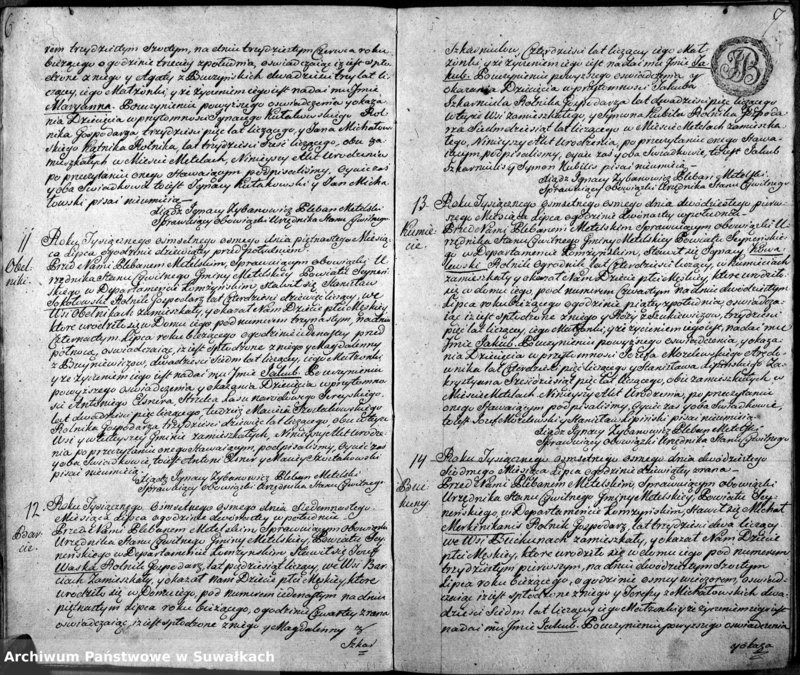 6
rem trzydziestym szostym, na dniu trzydziestym Czerwca roku
bieżącego ogodzinie trzeciey zpołudnia, oswiadczaiąc iż iest spło-
dzone z niego y Agaty z Buczyńskich dwadzieścia trzy lat li-
czącey, iego Małżonki, y że życzeniem iego iest nadać mu Jmie
Maryanna. Po uczynieniu powyższego oswiadczenia y okaza-
nia Dziecięcia w przytomności Jgnacego Kułakowskiego Rol-
nika Gospodarza trzydzieści pięć lat liczącego, y Jana Michało-
wskiego Kątnika Rolnika, lat trzydzieści sześć liczącego, obu za-
mieszkałych w Mieście Metelach, Ninieyszy Akt Urodzenia
po przeczytaniu onego Stawaiącym podpisaliśmy. Oyciec zaś
y oba Swiadkowie to iest Jgnacy Kułakowski y Jan Micha-
łowski pisać nieumieią
Xiądz Jgnacy Zybanowicz Pleban Metelski
Sprawuiący Obowiązki Urzędnika Stanu Cywilnego.
11
Obel-
niki.
Roku Tysiącznego osmsetnego osmego dnia piętnastego Miesią-
ca Lipca ogodzinie dziewiątey przed południem
Przed Nami Plebanem Metelskim, Sprawuiącym obowiązki U-
rzędnika Stanu Cywilnego Gminy Metelskiey Powiatu Seyneń-
skiego w Departamencie Łomżyńskim stawił się Stanisław
Sokołowski Rolnik Gospodarz lat czterdzieści dziewięć liczący, we
Wsi Obelnikach zamieszkały, y okazał Nam Dziecie płci Męskiey,
ktore urodziło się w domu iego pod numerem trzynastym, na dniu
Czternastym Lipca roku bieżącego ogodzinie iedenastey przed
północą, oswiadczaiąc, iż iest spłodzone z niego y Magdaleny
dwadzieścia siedm lat liczącey, iego Małżonki,
y że życzeniem iego iest nadać mu Jmie Jakub. Po uczynieniu
powyższego oswiadczenia y okazania Dziecięcia w przytomno-
ści Antoniego Strzelca Lasu narodowego
lat dwadzieścia pięć liczącego, tudzież Macieia Szostakowskiego
Rolnika Gospodarza trzydzieści dziewięć lat liczącego obu w teyże
Wsi y w teyże Gminie zamieszkałych, Ninieyszy Akt Urodze-
nia po przeczytaniu onego Stawaiącym, podpisaliśmy, Oyciec zaś
y oba Swiadkowie, to iest Antoni y Maciey Szostakowski
pisać nieumieią
Xiądz Jgnacy Zybanowicz Pleban Metelski
Sprawuiący Obowiązki Urzędnika Stanu Cywilnego.
12
Bar-
cie.
Roku Tysiącznego Osmsetnego osmego dnia Siedemnastego
Miesiąca Lipca ogodzinie dwunastey w południe
Przed Nami Plebanem Metelskim Sprawuiącym obowiązki
Urzędnika Stanu Cywilnego Gminy Metelskiey, Powiatu Sey-
neńskiego w Departamencie Łomżyńskim stawił się Jozef
Waska Rolnik Gospodarz, lat pędziesiąt liczący, we Wsi Bar-
ciach zamieszkały, y okazał Nam Dziecie płci Męskiey, ktore
urodziło się w Domu iego, pod numerem iedenastym na dniu
piętnastym Lipca roku bieżącego, o godzinie czwartey z rana
oswiadczaiąc, iż iest spłodzone z niego y Magdaleny z
Szkar
7
Szkarniulow, czterdzieści lat liczącey iego Mał-
żonki y że życzeniem iego iest nadać mu Jmie Ja-
kub. Po uczynieniu powyższego oswiadczenia y
okazania Dziecięcia w przytomności Jakuba
Szkarniula Rolnika Gospodarza lat dwadzieścia pięć liczącego
w teyże Wsi zamieszkałego, y Symona Kubila Rolnika Gospoda-
rza siedmdziesiąt lat liczącego w Mieście Metelach zamieszka-
łego, Ninieyszy Akt Urodzenia, po przeczytaniu onego Stawa-
iącym podpisaliśmy, Oyciec zaś y oba Swiadkowie, to iest Jakub
Szkarnulis y Symon Kubilis pisać nieumieią
Xiądz Jgnacy Zybanowicz Pleban Metelski
Sprawuiący Obowiązki Urzędnika Stanu Cywilnego
13
Kumie-
cie.
Roku Tysiącznego osmsetnego osmego dnia dwudziestego pierw-
szego Miesiąca Lipca ogodzinie dwunastey w południe
Przed Nami Plebanem Metelskim Sprawuiącym obowiązki U-
rzędnika Stanu Cywilnego Gminy Metelskiey Powiatu Seyneńskie-
go w Departamencie Łomżyńskim, stawił się Jgnacy Kowa-
lewski Rolnik Ogrodnik lat czterdzieści liczący, w Kumieciach
zamieszkały y okazał Nam Dziecie płci Męskiey, ktore urodziło
się w domu iego pod numerem Czwartym na dniu dwudziestym
Lipca roku bieżącego ogodzinie piątey z południa, oswiadcza-
iąc iż iest spłodzone z niego y Rozy trzydzieści
pięć lat liczącey, iego Małżonki, y że życzeniem iego iest, nadać mu
Jmie Jakub. Po uczynieniu powyższego oswiadczenia, y okaza-
nia Dziecięcia w przytomności Jozefa Mozelewskiego Arędo-
wnika lat czterdzieści pięć liczącego y Stanisława Lipińskiego Za-
krystyana sześćdziesiąt lat liczącego, obu zamieszkałych w
Mieście Metelach. Ninieyszy Akt Urodzenia, po przeczytaniu
onego Stawaiącym podpisaliśmy, Oyciec zaś y oba Swiadkowie,
to iest Jozef Mozelewski y Stanisław Lipiński pisać nieumieią
Xiądz Jgnacy Zybanowicz Pleban Metelski
Sprawuiący Obowiązki Urzędnika Stanu Cywilnego
14
Buc-
kuny.
Roku Tysiącznego osmsetnego osmego dnia dwudziestego
siodmego Miesiąca Lipca ogodzinie dziewiątey z rana
Przed Nami Plebanem Metelskim, Sprawuiącym obowiązki
Urzędnika Stanu Cywilnego Gminy Metelskiey Powiatu Sey-
neńskiego, w Departamencie Łomżyńskim, stawił się Michał
Merkinkanis Rolnik Gospodarz, lat trzydzieści dwa liczący
we Wsi Buckunach zamieszkały, y okazał Nam Dziecie
płci Męskiey, ktore urodziło się w domu iego pod numerem
trzydziestym pierwszym, na dniu dwudziestym szostym
Lipca roku bieżącego, o godzinie osmey wieczorem, oswiad-
czaiąc iż iest spłodzone z niego y Jozefy z Michałowskich dwa-
dzieścia siedm lat liczącey iego Małżonki y że życzeniem iego iest
nadać mu Jmie Jakub. Po uczynieniu powyższego oswiadczenia
y okaza
Archiwum Państwowe w Suwałkach